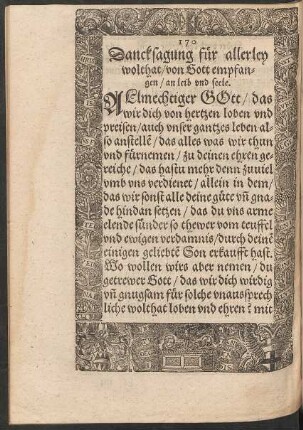 170
Dancksagung für allerley
wolthat/von Gott empfan-
gen/an leib vnd seele.
ALlmechtiger GOtt/das
wir dich von hertzen loben vnd
preisen/auch vnser gantzes leben al-
so anstellē/das alles was wir thun
vnd fürnemen/zu deinen ehren ge-
reiche/das hastu mehr denn zuuiel
vmb vns verdienet/allein in dem/
das wir sonst alle deine güte vn̄ gna-
de hindan setzen/das du vns arme
elende sünder so thewer vom teuffel
vnd ewigen verdamnis/durch deinē
einigen geliebtē Son erkaufft hast.
Wo wollen wirs aber nemen/du
getrewer Gott/das wir dich wirdig
vn̄ gnugsam für solche vnaussprech
liche wolthat loben vnd ehren? mit